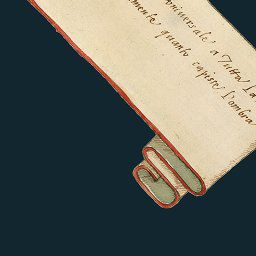 vniuersale a Tutta la
mente quanto capisce l'ombra